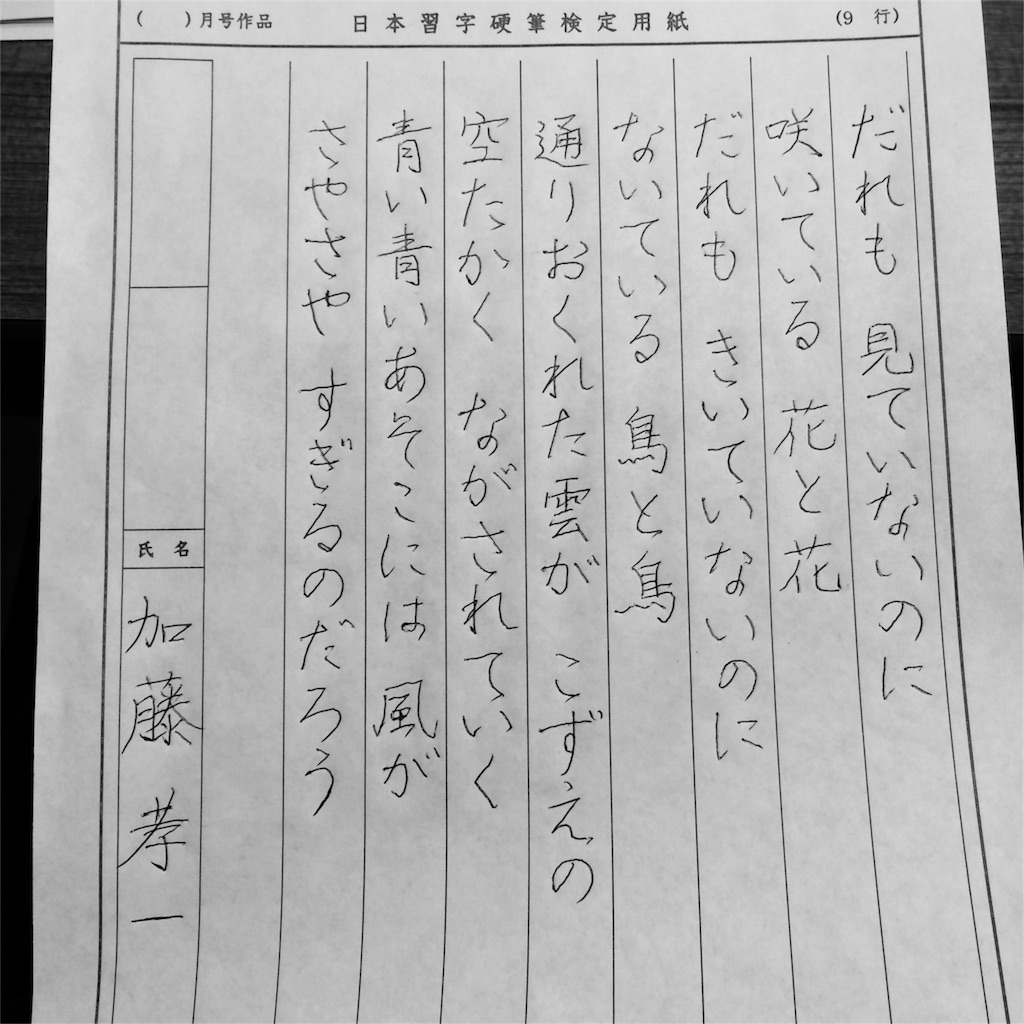 ( )月号作品 日本習字硬筆検定用紙 (9 行)
だれも 見ていないのに
咲いている 花と花
だれも きいていないのに
ないている 鳥と鳥
通りおくれた雲が こずえの
空たかく ながされていく
青い青いあそこには 風が
さやさや すぎるのだろう
氏名
加藤 孝一